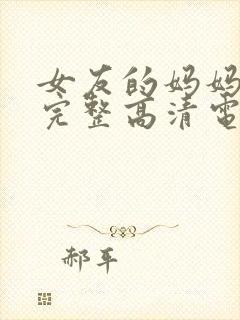 女友的妈妈
完整高清電
郝平